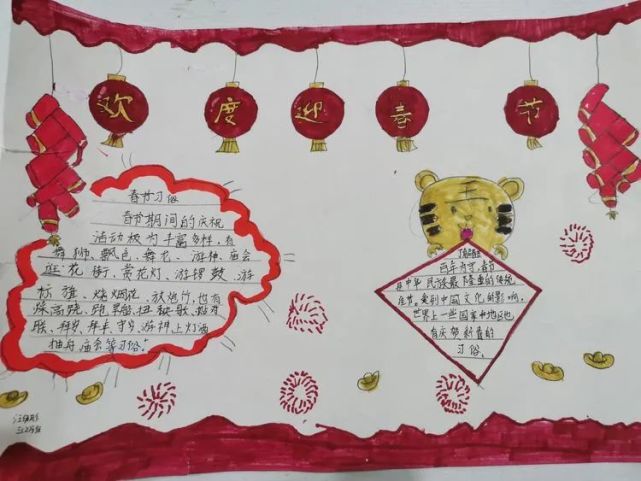 欢度迎春节
春节习俗
春节期间的庆祝
活动极为丰富多样,有
舞狮、飘色、舞龙、游神、庙会
逛花街、赏花灯、游锣鼓、游
标旗、烧烟花、放炮竹,也有
踩高跷、跑旱船、扭秧歌、贴对
联、拜岁、拜年、守岁、游神、上灯酒
庙会等习俗。
百年节、守岁、春节
在中华民族最隆重的传统
佳节。受到中国文化的影响,
世界上一些国家和地区也
有庆贺新春的
习俗。